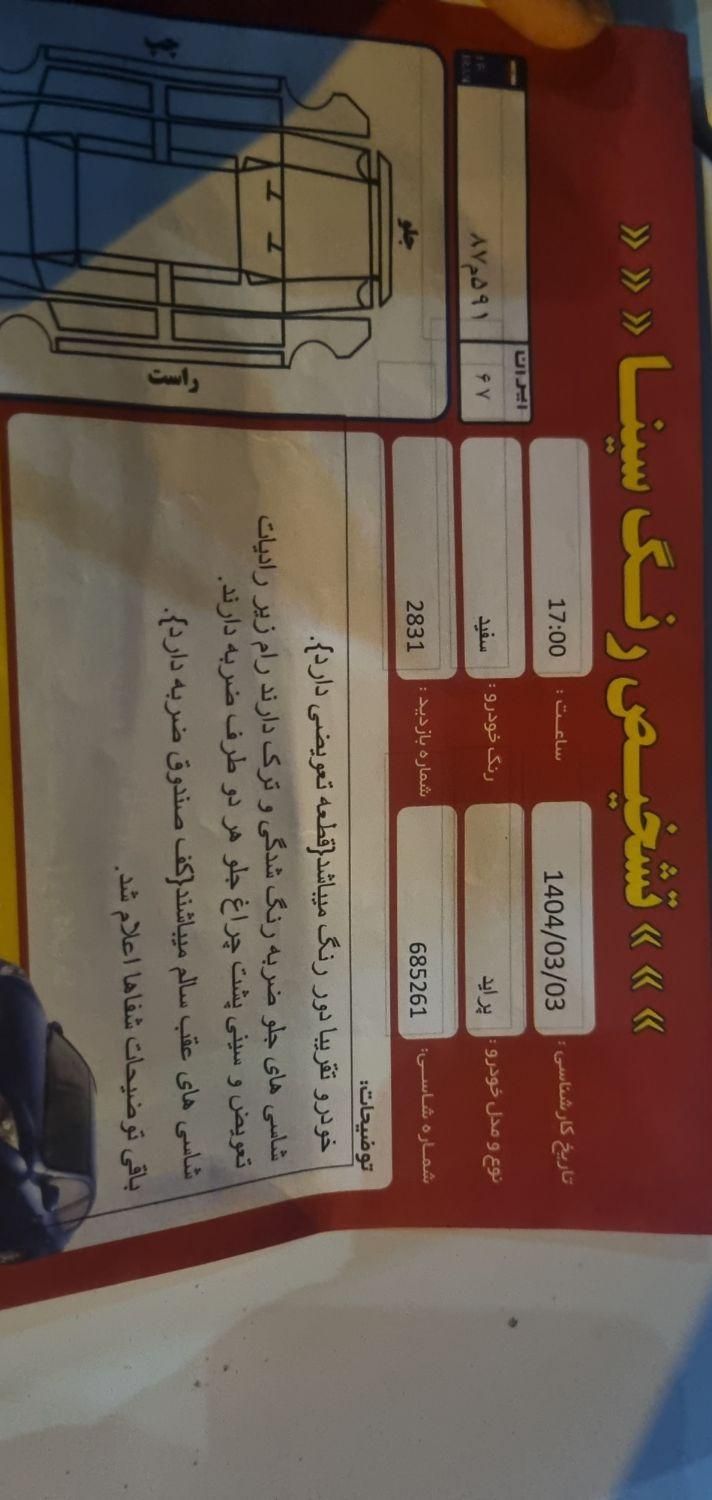 « « « تشخیص رنگ سینا » » »
تاریخ کارشناسی : 1404/03/03
ساعت : 17:00
نوع و مدل خودرو : پراید
رنگ خودرو : سفید
شماره شاسی: 685261
شماره بازدید : 2831
ایران
۸۷م۵۹۱ ۶۷
جلو
راست
توضیحات:
خودرو تقریبا دور رنگ میباشد{قطعه تعویضی دارد}.
شاسی های جلو ضربه رنگ شدگی و ترک دارند رام زیر رادیات
تعویض و سینی پشت چراغ جلو هر دو طرف ضربه دارند.
شاسی های عقب سالم میباشند{کف صندوق ضربه دارد}.
باقی توضیحات شفاها اعلام شد.